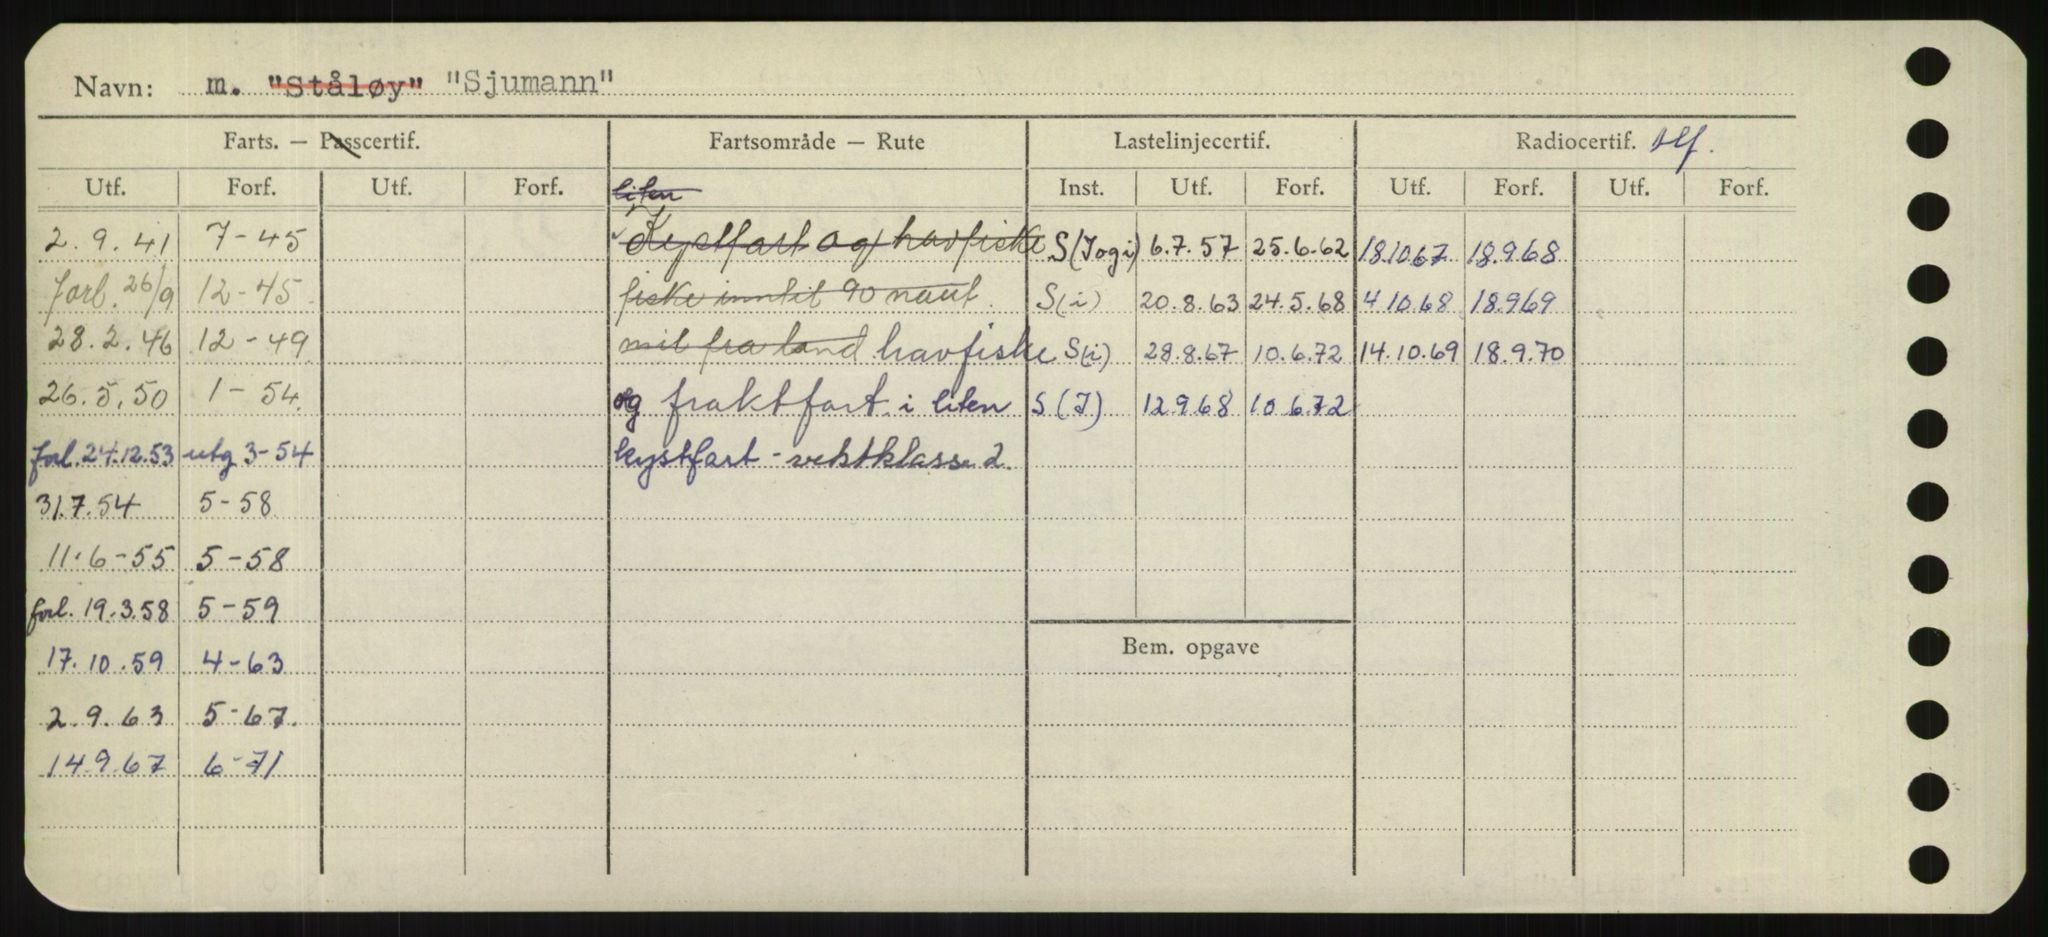 Navn: m. "Ståløy" "Sjumann"
Farts. — Passcertif. Fartsområde — Rute Lastelinjecertif. Radiocertif. tlf.
Utf. Forf. Utf. Forf. liten Inst. Utf. Forf. Utf. Forf. Utf. Forf.
2.9.41 7-45 Kystfart og havfiske S(J og i) 6.7.57 25.6.62 18.10.67 18.9.68
forl. 26/9 12-45 fiske inntil 90 naut. S(i) 20.8.63 24.5.68 4.10.68 18.9.69
28.2.46 12-49 mil fra land havfiske S(i) 28.8.67 10.6.72 14.10.69 18.9.70
26.5.50 1-54. og fraktfart i liten S(J) 12.9.68 10.6.72
forl. 24.12.53 utg 3-54 kystfart - vektklasse 2.
31.7.54 5-58
11.6-55 5-58
forl. 19.3.58 5-59
Bem. opgave
17.10.59 4-63
2.9.63 5-67.
14.9.67 6-71